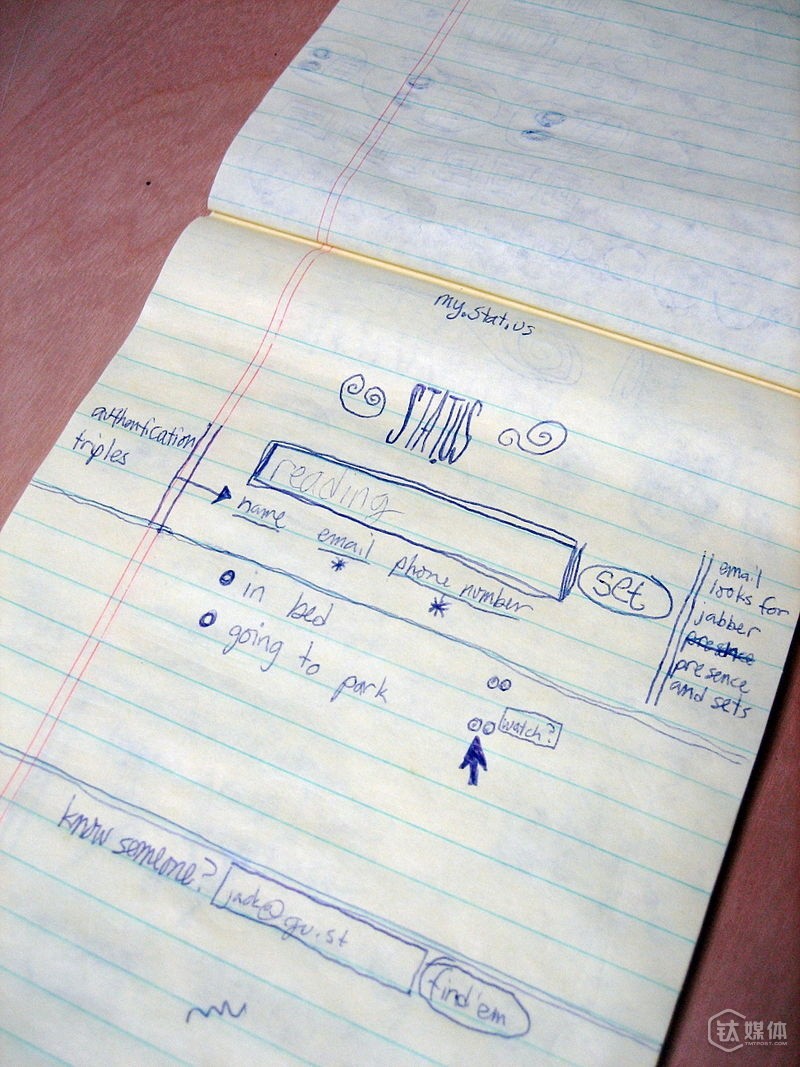 my.stat.us
STAT.US
authentication
triples
reading
name
email
phone number
*
*
set
email
looks for
jabber
presence
presence
and sets
in bed
going to park
watch?
know someone?
jack@gu.st
find 'em
钛媒体
TMTPOST.COM